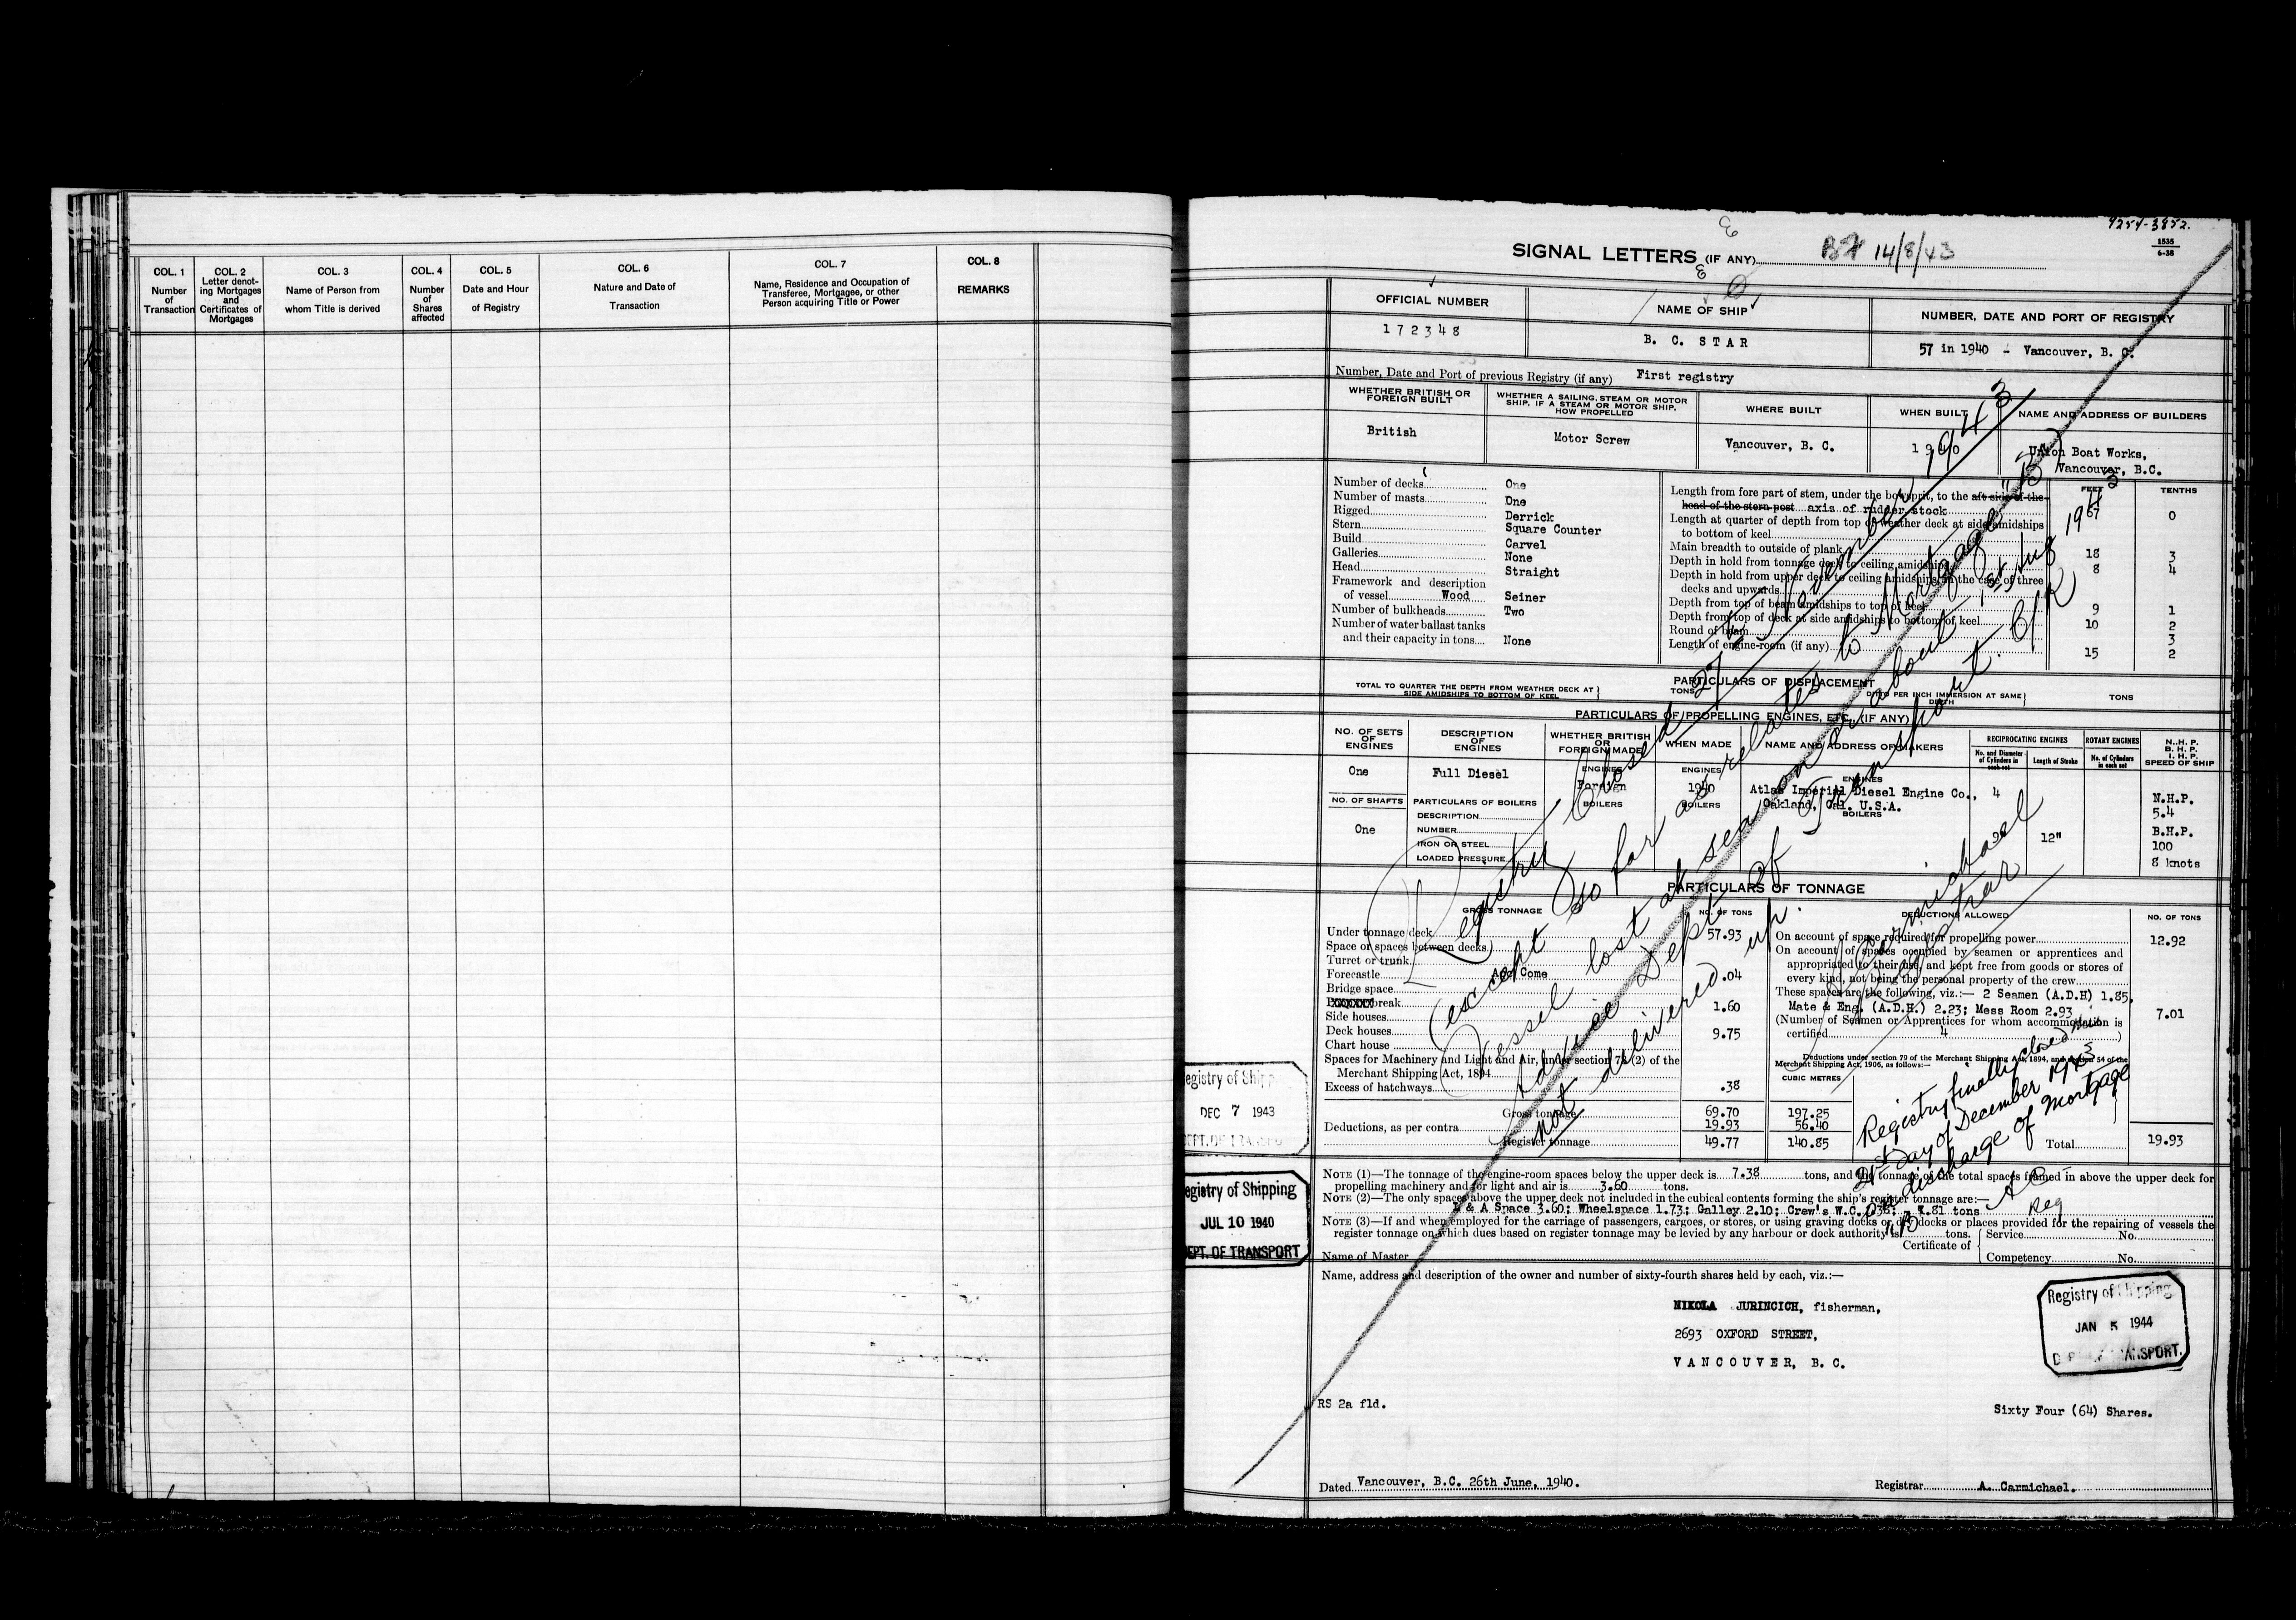 COL. 1
Number
of
Transaction
COL. 2
Letter denot-
ing Mortgages
and
Certificates of
Mortgages
COL. 3
Name of Person from
whom Title is derived
COL. 4
Number
of
Shares
affected
COL. 5
Date and Hour
of Registry
COL. 6
Nature and Date of
Transaction
COL. 7
Name, Residence and Occupation of
Transferee, Mortgagee, or other
Person acquiring Title or Power
COL. 8
REMARKS
9254-3852.
1535
6-38
SIGNAL LETTERS (IF ANY) 14/8/43
OFFICIAL NUMBER
172348
NAME OF SHIP
B. C. STAR
NUMBER, DATE AND PORT OF REGISTRY
57 in 1940 - Vancouver, B. C.
Number, Date and Port of previous Registry (if any) First registry
WHETHER BRITISH OR
FOREIGN BUILT
British
WHETHER A SAILING, STEAM OR MOTOR
SHIP. IF A STEAM OR MOTOR SHIP,
HOW PROPELLED
Motor Screw
WHERE BUILT
Vancouver, B. C.
WHEN BUILT
1940
NAME AND ADDRESS OF BUILDERS
Union Boat Works,
Vancouver, B.C.
Number of decks One
Number of masts One
Rigged Derrick
Stern Square Counter
Build Carvel
Galleries None
Head Straight
Framework and description
of vessel Wood Seiner
Number of bulkheads Two
Number of water ballast tanks
and their capacity in tons None
FEET TENTHS
Length from fore part of stem, under the bowsprit, to the aft side of the
head of the stern post axis of rudder stock 67 0
Length at quarter of depth from top of weather deck at side amidships
to bottom of keel
Main breadth to outside of plank 18 3
Depth in hold from tonnage deck to ceiling amidships 8 4
Depth in hold from upper deck to ceiling amidships, in the case of three
decks and upwards
Depth from top of beam amidships to top of keel 9 1
Depth from top of deck at side amidships to bottom of keel 10 2
Round of beam 3
Length of engine-room (if any) 15 2
PARTICULARS OF DISPLACEMENT
TOTAL TO QUARTER THE DEPTH FROM WEATHER DECK AT
SIDE AMIDSHIPS TO BOTTOM OF KEEL
TONS
DITTO PER INCH IMMERSION AT SAME
DEPTH
TONS
PARTICULARS OF PROPELLING ENGINES, ETC. (IF ANY)
NO. OF SETS
OF
ENGINES
One
NO. OF SHAFTS
One
DESCRIPTION
OF
ENGINES
Full Diesel
PARTICULARS OF BOILERS
DESCRIPTION
NUMBER
IRON OR STEEL
LOADED PRESSURE
WHETHER BRITISH
OR
FOREIGN MADE
ENGINES
Foreign
BOILERS
WHEN MADE
ENGINES
1940
BOILERS
NAME AND ADDRESS OF MAKERS
ENGINES
Atlas Imperial Diesel Engine Co.,
Oakland, Cal. U.S.A.
BOILERS
RECIPROCATING ENGINES
No. and Diameter
of Cylinders in
each set
Length of Stroke
4
9"
12"
ROTARY ENGINES
No. of Cylinders
in each set
N.H.P.
B.H.P.
I.H.P.
SPEED OF SHIP
N.H.P.
5.4
B.H.P.
100
8 knots
PARTICULARS OF TONNAGE
GROSS TONNAGE NO. OF TONS
Under tonnage deck 57.93
Space or spaces between decks
Turret or trunk
Forecastle App Come .04
Bridge space
break 1.60
Side houses
Deck houses 9.75
Chart house
Spaces for Machinery and Light and Air, under section 78 (2) of the
Merchant Shipping Act, 1894
Excess of hatchways .38
Gross tonnage 69.70 197.25
Deductions, as per contra 19.93 56.40
Register tonnage 49.77 140.85
CUBIC METRES
DEDUCTIONS ALLOWED NO. OF TONS
On account of space required for propelling power 12.92
On account of spaces occupied by seamen or apprentices and
appropriated to their use, and kept free from goods or stores of
every kind, not being the personal property of the crew
These spaces are the following, viz.:— 2 Seamen (A.D.H) 1.85,
Mate & Eng. (A.D.H.) 2.23; Mess Room 2.93 7.01
(Number of Seamen or Apprentices for whom accommodation is
certified 4 )
Deductions under section 79 of the Merchant Shipping Act, 1894, and section 54 of the
Merchant Shipping Act, 1906, as follows:—
Total 19.93
Registry Closed 27th November 1943
(except so far as relates to Mortgage "B")
Vessel lost at sea on or about 1st Aug 1943
Advice Dept of Transport. C/R
not delivered up.
A Carmichael
Registrar
Registry finally closed this
21st Day of December 1943
on discharge of Mortgage
"B"
AC
Reg
NOTE (1)—The tonnage of the engine-room spaces below the upper deck is 7.38 tons, and the tonnage of the total spaces framed in above the upper deck for
propelling machinery and for light and air is 3.60 tons.
NOTE (2)—The only spaces above the upper deck not included in the cubical contents forming the ship's register tonnage are:—
L & A Space 3.60; Wheelspace 1.73; Galley 2.10; Crew's W.C. 0.38; - 7.81 tons
NOTE (3)—If and when employed for the carriage of passengers, cargoes, or stores, or using graving docks or dry docks or places provided for the repairing of vessels the
register tonnage on which dues based on register tonnage may be levied by any harbour or dock authority is tons.
Name of Master
Certificate of
Service No.
Competency No.
Name, address and description of the owner and number of sixty-fourth shares held by each, viz.:—
NIKOLA JURINCICH, fisherman,
2693 OXFORD STREET,
VANCOUVER, B. C.
RS 2a fld.
Sixty Four (64) Shares.
Dated Vancouver, B.C. 26th June, 1940.
Registrar A. Carmichael.
Registry of Shipping
DEC 7 1943
DEPT. OF TRANSPORT
Registry of Shipping
JUL 10 1940
DEPT. OF TRANSPORT
Registry of Shipping
JAN 5 1944
DEPT. OF TRANSPORT.